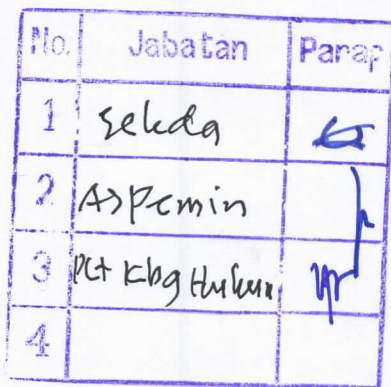 No. Jabatan Paraf
1 Sekda
2 Aspemin
3 Plt Kbg Hukum
4